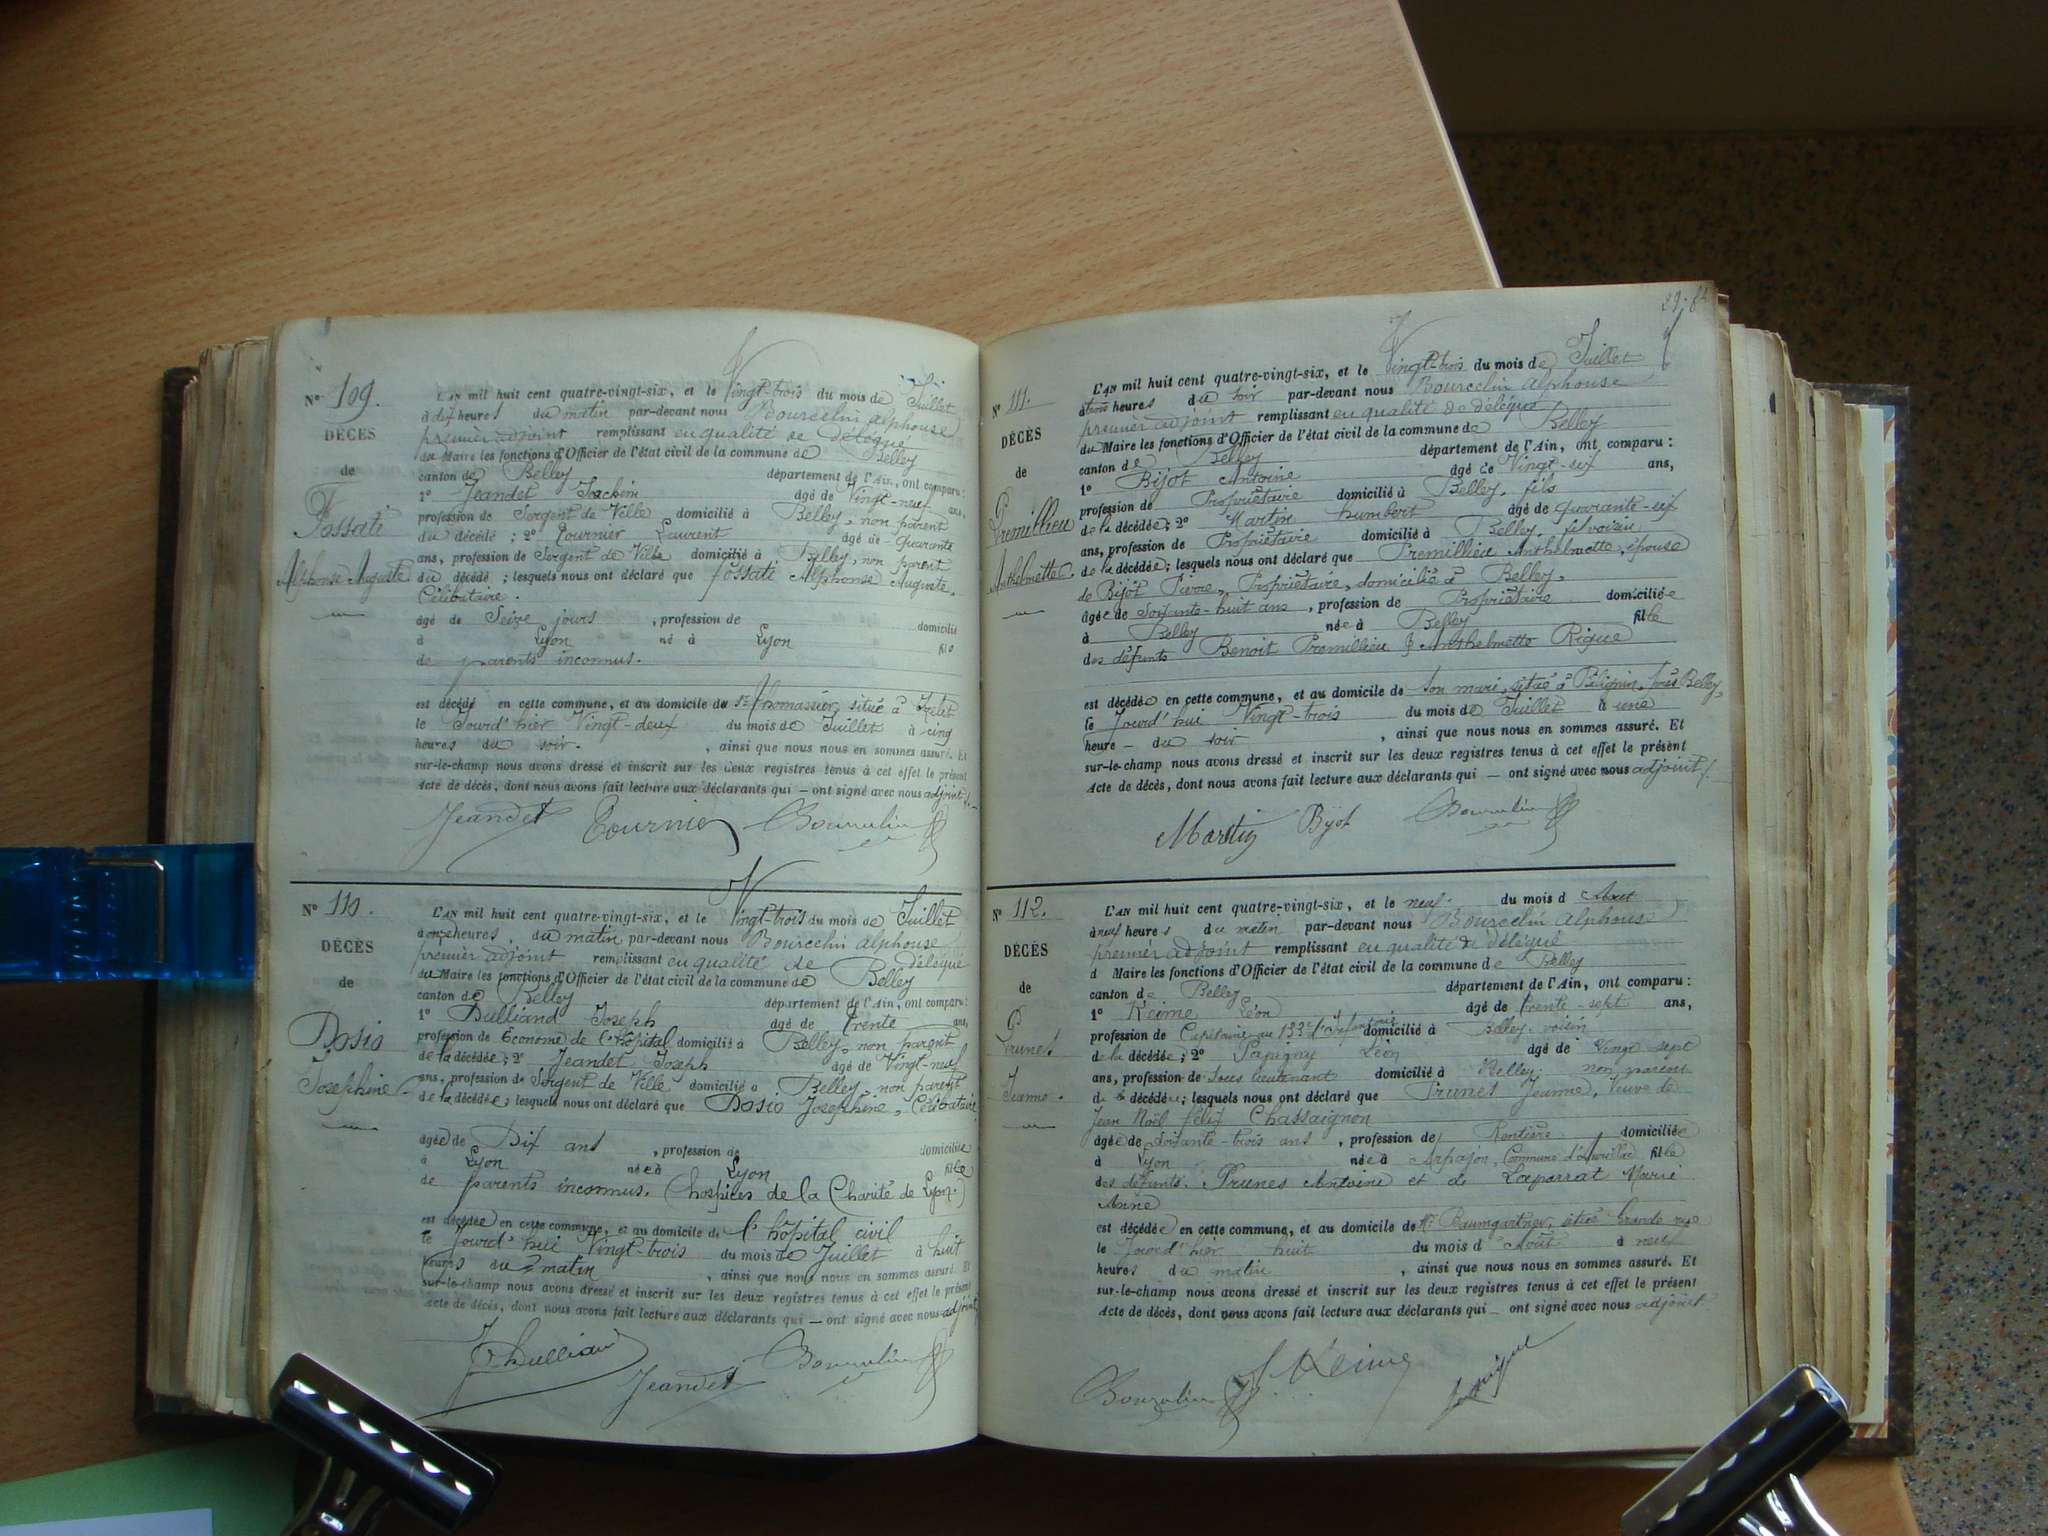 Nº 109.
DÉCÈS
de
Fossati
Alphonse Auguste
L'AN mil huit cent quatre-vingt-six, et le Vingt-trois du mois de Juillet
à dix heures du matin par-devant nous Bourcelin Alphonse
premier adjoint remplissant en qualité de délégué
du Maire les fonctions d'Officier de l'état civil de la commune de Belley
canton de Belley département de l'Ain, ont comparu :
1º Jeandet Joachim âgé de Vingt-neuf ans,
profession de Sergent de Ville domicilié à Belley, non parent
du décédé ; 2º Tournier Laurent âgé de quarante
ans, profession de Sergent de Ville domicilié à Belley, non parent
du décédé ; lesquels nous ont déclaré que Fossati Alphonse Auguste,
Célibataire.
âgé de Seize jours , profession de domicilié
à Lyon né à Lyon fils
de parents inconnus.
est décédé en cette commune, et au domicile du Sr Thomassier, situé à
le Jourd'hier Vingt-deux du mois de Juillet à cinq
heures du soir. , ainsi que nous nous en sommes assuré. Et
sur-le-champ nous avons dressé et inscrit sur les deux registres tenus à cet effet le présent
Acte de décès, dont nous avons fait lecture aux déclarants qui — ont signé avec nous adjoint
Jeandet Tournier Bourcelin
Nº 110.
DÉCÈS
de
Dosio
Josephine
L'AN mil huit cent quatre-vingt-six, et le Vingt-trois du mois de Juillet
à onze heures, du matin par-devant nous Bourcelin Alphonse
premier adjoint remplissant en qualité de délégué
du Maire les fonctions d'Officier de l'état civil de la commune de Belley
canton de Belley département de l'Ain, ont comparu :
1º Dulliand Joseph âgé de trente ans,
profession de Econome de l'Hôpital domicilié à Belley, non parent
de la décédée ; 2º Jeandet Joseph âgé de Vingt-neuf
ans, profession de Sergent de Ville domicilié à Belley, non parent
de la décédée ; lesquels nous ont déclaré que Dosio Josephine, Célibataire
âgée de Dix ans , profession de domiciliée
à Lyon née à Lyon fille
de parents inconnus. (hospices de la Charité de Lyon.)
est décédée en cette commune, et au domicile de l'hôpital civil
le Jourd'hui Vingt-trois du mois de Juillet à huit
heures du matin , ainsi que nous nous en sommes assuré. Et
sur-le-champ nous avons dressé et inscrit sur les deux registres tenus à cet effet le présent
Acte de décès, dont nous avons fait lecture aux déclarants qui — ont signé avec nous adjoint
Dulliand Jeandet Bourcelin
Nº 111.
DÉCÈS
de
Premillieu
Anthelmette
L'AN mil huit cent quatre-vingt-six, et le Vingt-trois du mois de Juillet
à trois heures du soir par-devant nous Bourcelin Alphonse
premier adjoint remplissant en qualité de délégué
du Maire les fonctions d'Officier de l'état civil de la commune de Belley
canton de Belley département de l'Ain, ont comparu :
1º Bijot Antoine âgé de Vingt-six ans,
profession de Propriétaire domicilié à Belley, fils
de la décédée ; 2º Martin humbert âgé de quarante-six
ans, profession de Propriétaire domicilié à Belley, voisin
de la décédée ; lesquels nous ont déclaré que Premillieu Anthelmette, épouse
de Bijot Pierre, Propriétaire, domicilié à Belley,
âgée de soixante-huit ans , profession de Propriétaire domiciliée
à Belley née à Belley fille
des défunts Benoit Premillieu & Anthelmette Rigue
est décédée en cette commune, et au domicile de son mari, situé à Pelignin, près Belley,
le Jourd'hui Vingt-trois du mois de Juillet à une
heure — du soir , ainsi que nous nous en sommes assuré. Et
sur-le-champ nous avons dressé et inscrit sur les deux registres tenus à cet effet le présent
Acte de décès, dont nous avons fait lecture aux déclarants qui — ont signé avec nous adjoint
Martin Bijot Bourcelin
Nº 112.
DÉCÈS
de
Prunes
Jeanne.
L'AN mil huit cent quatre-vingt-six, et le neuf. du mois d'Août
à neuf heures du matin par-devant nous Bourcelin Alphonse
premier adjoint remplissant en qualité de délégué
d Maire les fonctions d'Officier de l'état civil de la commune de Belley
canton de Belley département de l'Ain, ont comparu :
1º Keime Léon âgé de trente-sept ans,
profession de Capitaine au 133e d'Infanterie domicilié à Belley, voisin
de la décédée ; 2º Papigny Léon âgé de Vingt sept
ans, profession de Sous lieutenant domicilié à Belley, non parent
de la décédée ; lesquels nous ont déclaré que Prunes Jeanne, Veuve de
Jean Noël félix Chassaignon
âgée de soixante-trois ans , profession de Rentière domiciliée
à Lyon née à Arpajon, Commune d'Aurillac fille
des défunts Prunes Antoine et de Laparrat Marie
Anne
est décédée en cette commune, et au domicile de Mr Baumgartner, situé Grande rue
le Jourd'hier huit du mois d'Août à neuf
heures du matin , ainsi que nous nous en sommes assuré. Et
sur-le-champ nous avons dressé et inscrit sur les deux registres tenus à cet effet le présent
Acte de décès, dont nous avons fait lecture aux déclarants qui — ont signé avec nous adjoint
Bourcelin Keime